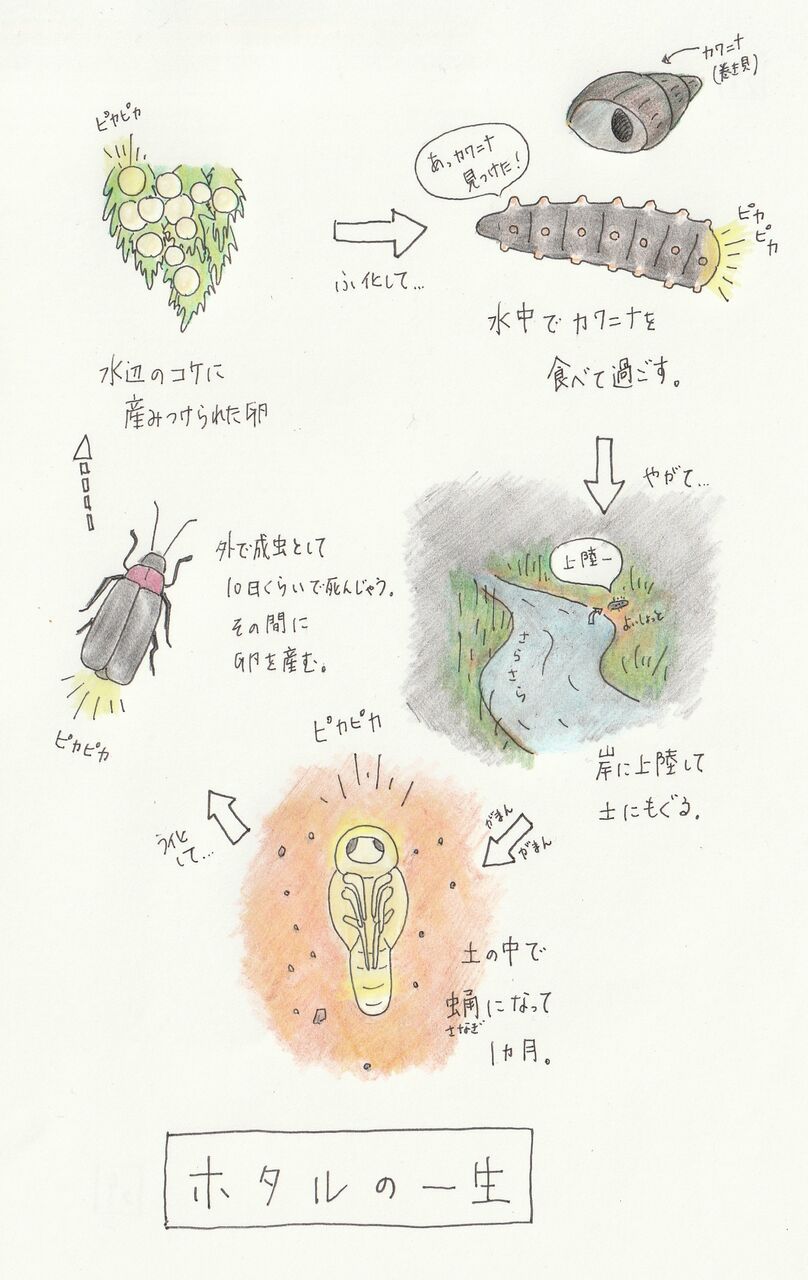 ピカピカ
水辺のコケに
産みつけられた卵
ふ化して…
カワニナ
(巻き貝)
あっカワニナ
見つけた!
ピカ
ピカ
水中でカワニナを
食べて過ごす。
やがて…
上陸ー
よいしょっと
さらさら
岸に上陸して
土にもぐる。
がまん
がまん
ピカピカ
土の中で
蛹になって
さなぎ
1ヵ月。
ウ化
して…
外で成虫として
10日くらいで死んじゃう。
その間に
卵を産む。
ピカピカ
ホタルの一生